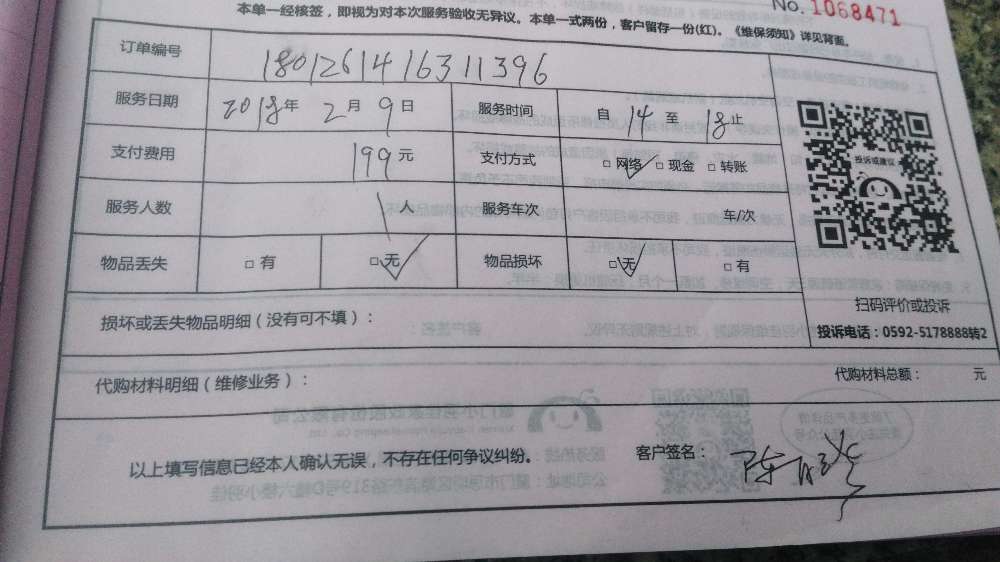 No. 1068471
本单一经核签，即视为对本次服务验收无异议。本单一式两份，客户留存一份(红)。《维保须知》详见背面。
订单编号 180126141631 1396
服务日期 2018年 2月 9日 服务时间 自 14 至 18 止
支付费用 199元 支付方式 □网络✓ □现金 □转账
投诉或建议
服务人数 1人 服务车次 车/次
物品丢失 □有 □无✓ 物品损坏 □无✓ □有
扫码评价或投诉
损坏或丢失物品明细（没有可不填）：
投诉电话：0592-5178888转2
代购材料明细（维修业务）： 代购材料总额： 元
以上填写信息已经本人确认无误，不存在任何争议纠纷。 客户签名： 陈